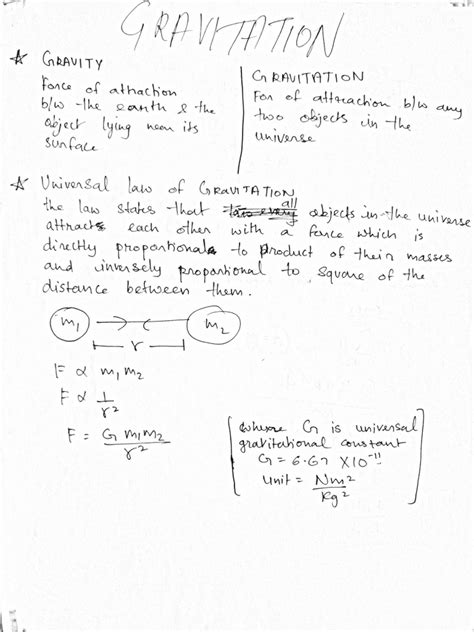 GRAVITATION
☆ GRAVITY
Force of attraction
b/w the earth & the
object lying near its
surface
GRAVITATION
For of attraction b/w any
two objects in the
universe
☆ Universal law of GRAVITATION
the law states that all objects in the universe
attracts each other with a force which is
directly proportional to product of their masses
and inversely proportional to square of the
distance between them.
m₁ m₂
r
F ∝ m₁m₂
F ∝ 1/r²
F = G m₁m₂/r²
where G is universal
gravitational constant
G = 6.67 X10⁻¹¹
unit = Nm²/kg²